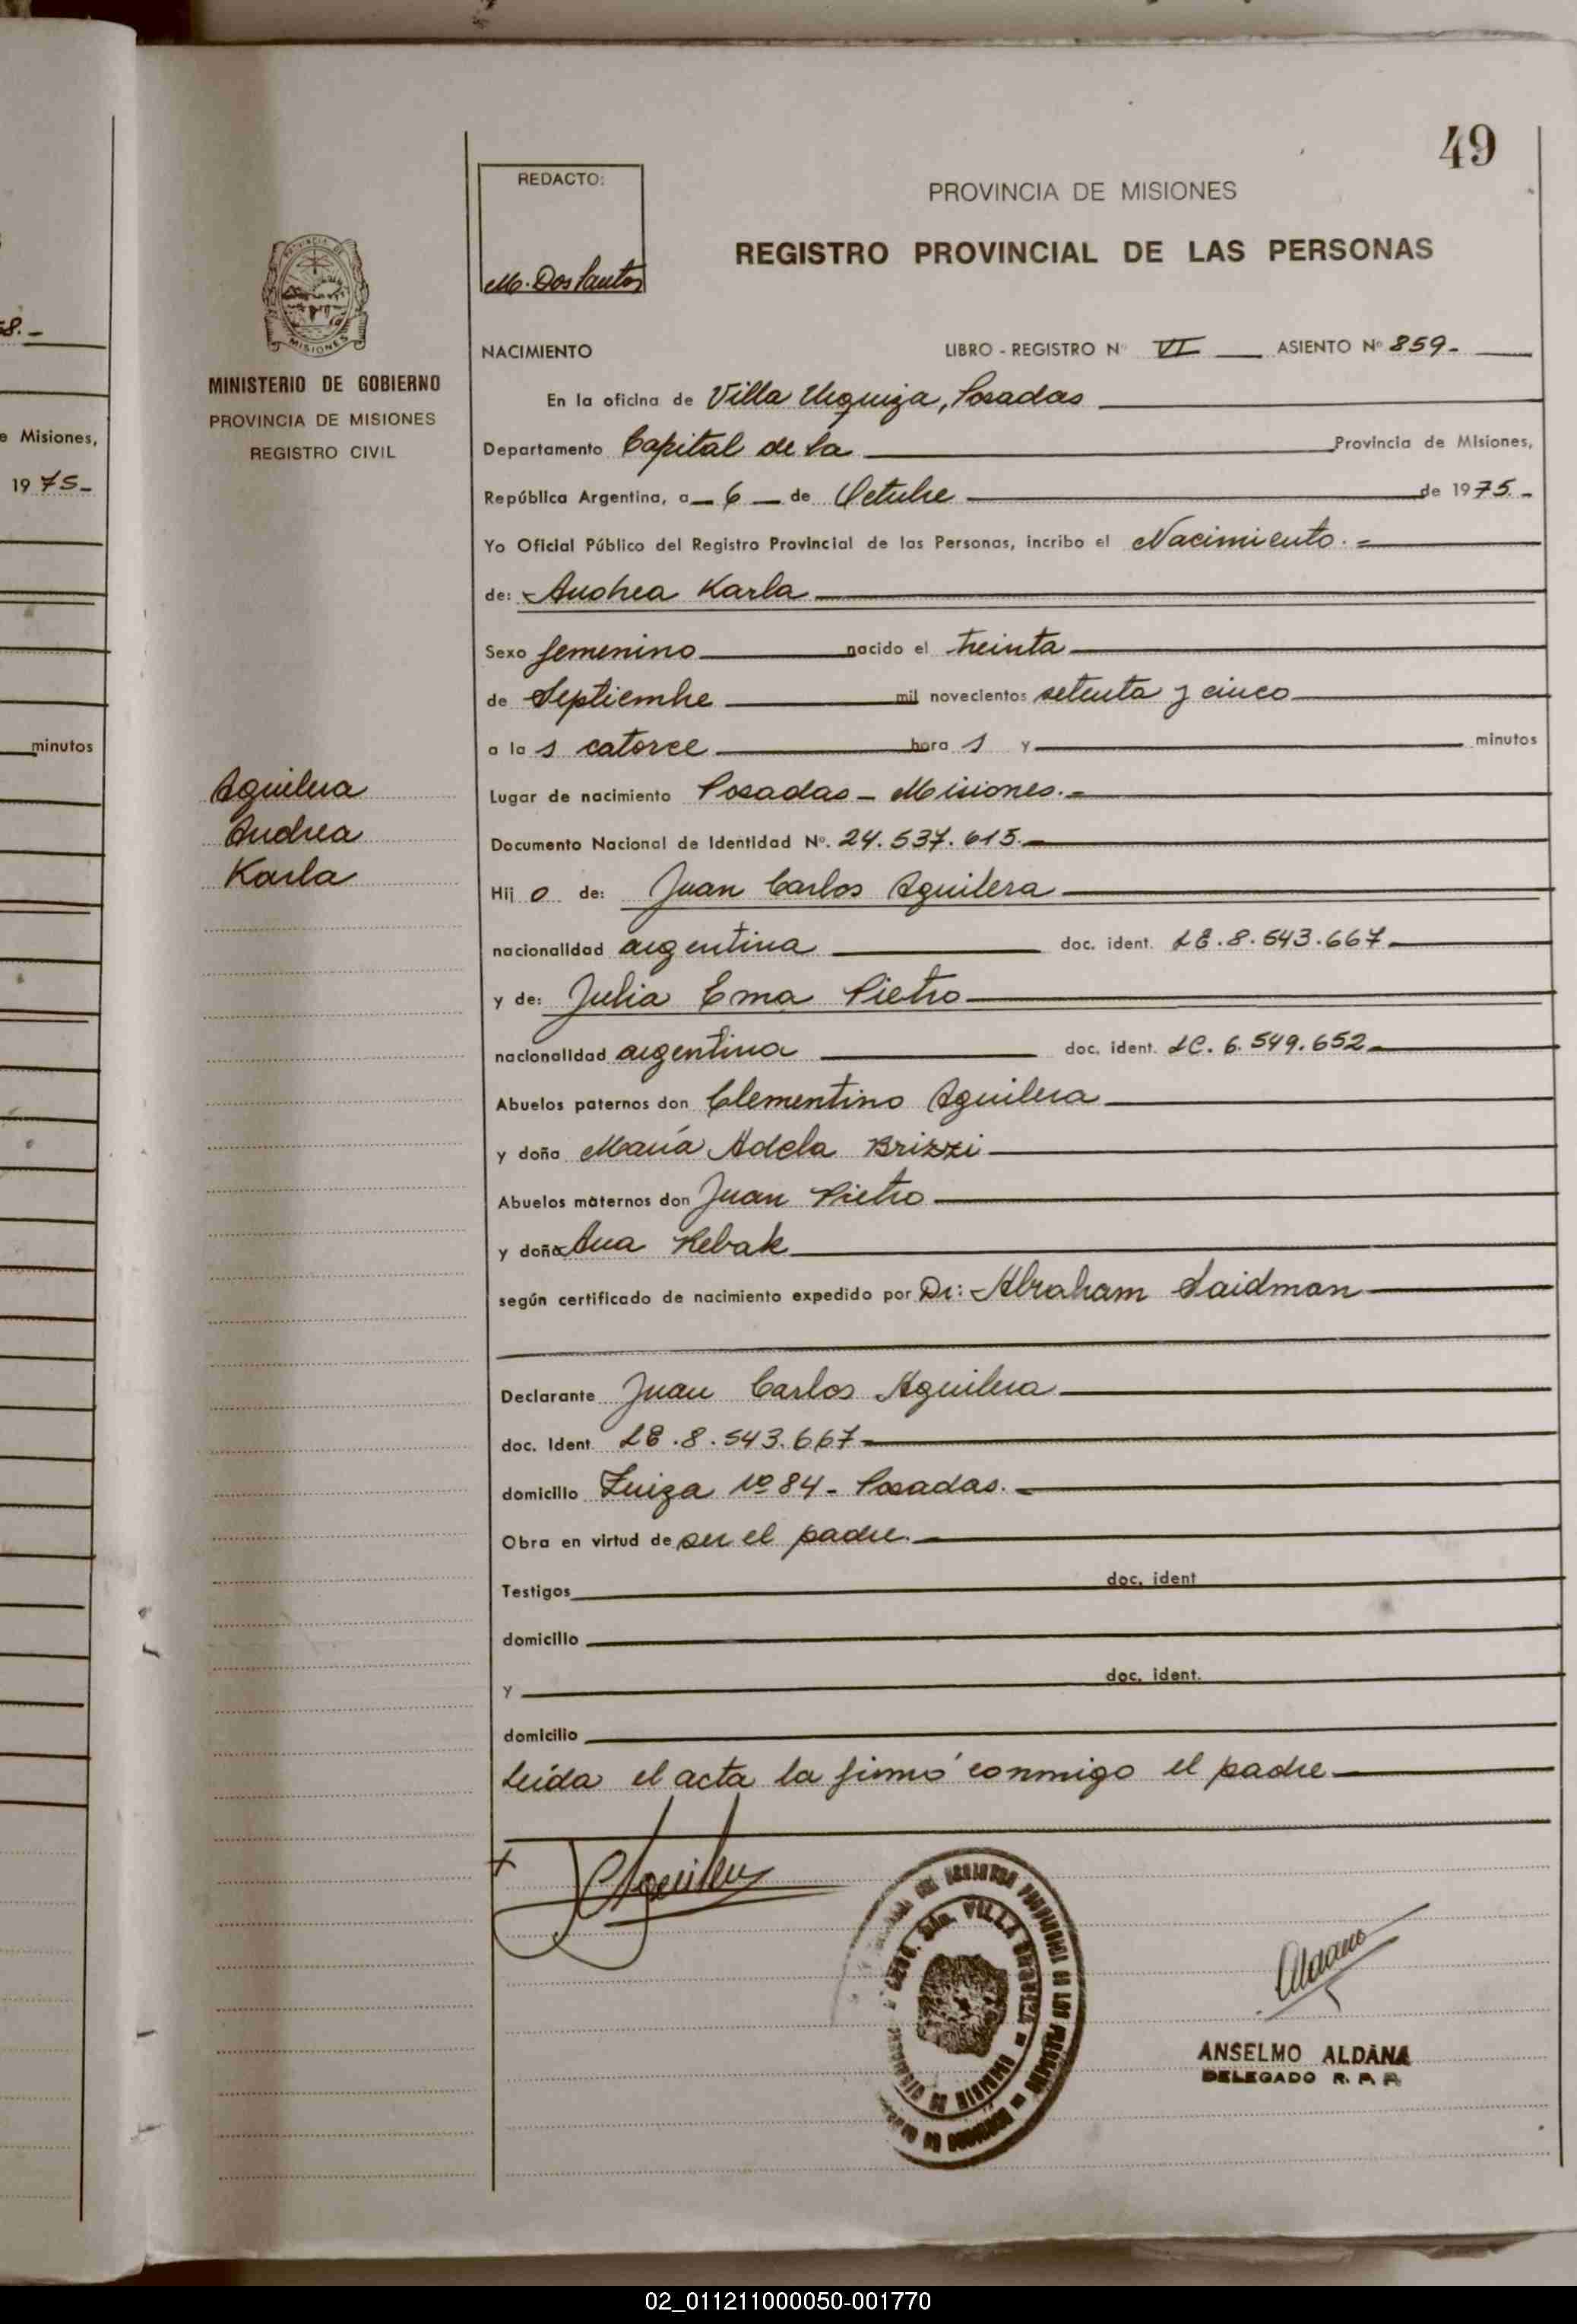 49
REDACTO:
M. Dos Santos
PROVINCIA DE MISIONES
REGISTRO PROVINCIAL DE LAS PERSONAS
NACIMIENTO
LIBRO - REGISTRO Nº VI ASIENTO Nº 859.-
MISIONES
MINISTERIO DE GOBIERNO
PROVINCIA DE MISIONES
REGISTRO CIVIL
e Misiones,
19 75-
minutos
Aguilera
Andrea
Karla
En la oficina de Villa Urquiza, Posadas
Departamento Capital de la Provincia de Misiones,
República Argentina, a 6 de Octubre de 1975.-
Yo Oficial Público del Registro Provincial de las Personas, incribo el Nacimiento.=
de: Andrea Karla
Sexo femenino nacido el treinta
de Septiembre mil novecientos setenta y cinco
a las catorce horas y minutos
Lugar de nacimiento Posadas - Misiones.=
Documento Nacional de Identidad Nº. 24.537.615.-
Hijo de: Juan Carlos Aguilera
nacionalidad argentina doc. ident. LE.8.543.667
y de: Julia Ema Pietro
nacionalidad argentina doc. ident. LC. 6.549.652
Abuelos paternos don Clementino Aguilera
y doña María Adela Brizzi
Abuelos maternos don Juan Pietro
y doña Ana Rebak
según certificado de nacimiento expedido por Dr: Abraham Saidman
Declarante Juan Carlos Aguilera
doc. Ident. LE.8.543.667
domicilio Nº 84 - Posadas.-
Obra en virtud de ser el padre.
Testigos doc. ident
domicilio
y doc. ident.
domicilio
Leída el acta la firmó conmigo el padre
JCAguilera
VILLA URQUIZA
Aldana
ANSELMO ALDANA
DELEGADO R. P. P.
02_011211000050-001770